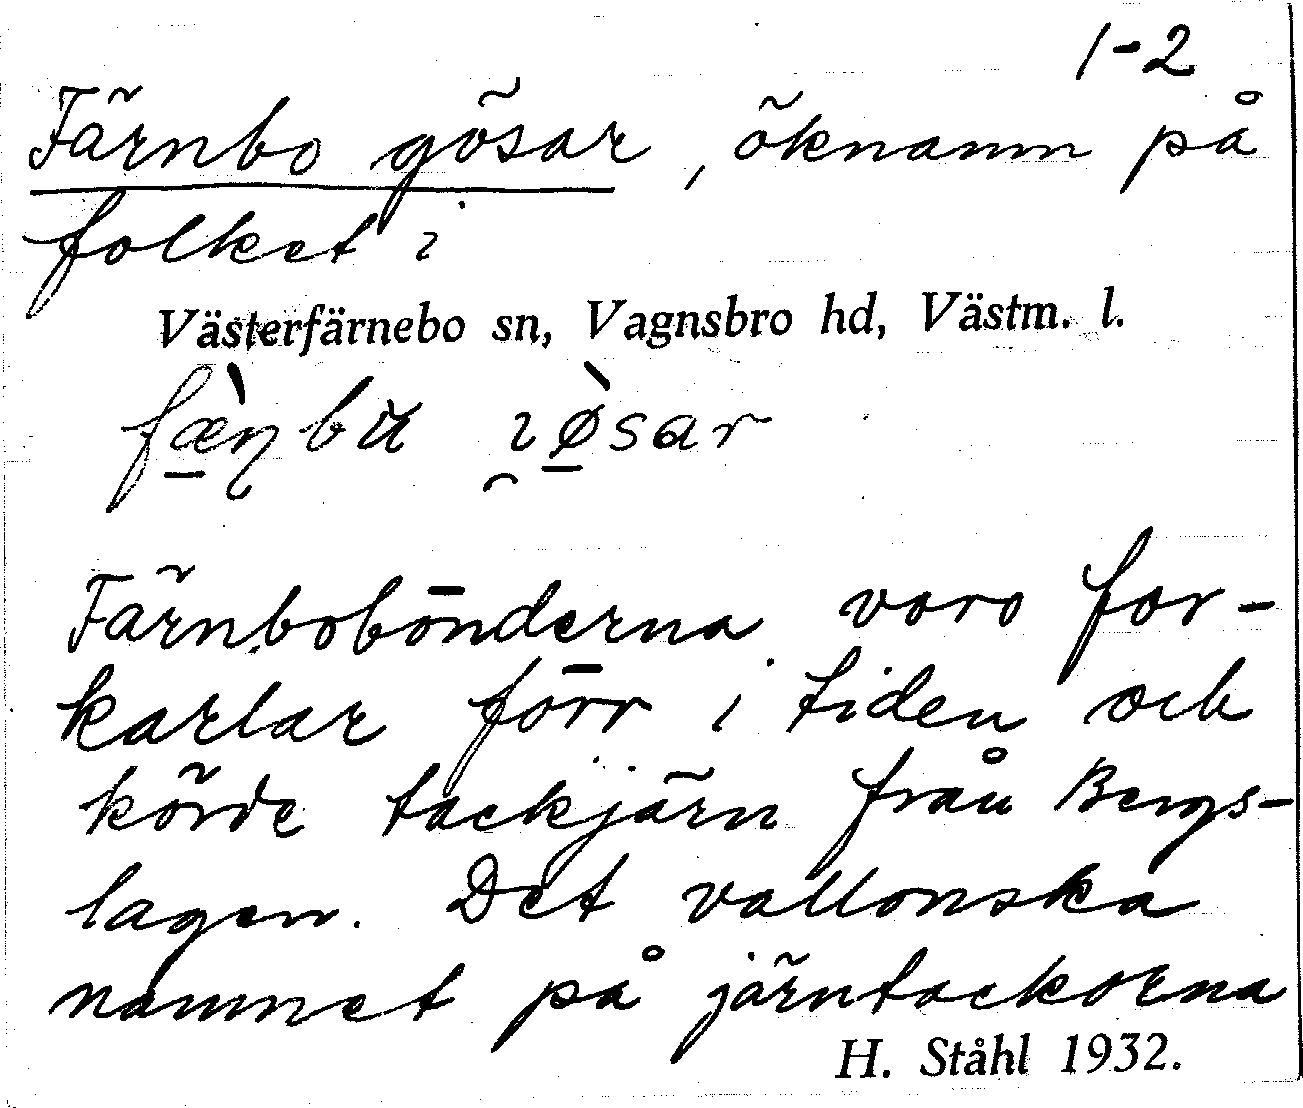 1-2
Färnbo gösar, öknamn på
folket i
Västerfärnebo sn, Vagnsbro hd, Västm. l.
fæ̠̀ɳbu i̯ø̠̀sar
Färnbobönderna voro for-
karlar förr i tiden och
körde tackjärn från Bergs-
lagen. Det vallonska
namnet på järntackorna
H. Ståhl 1932.